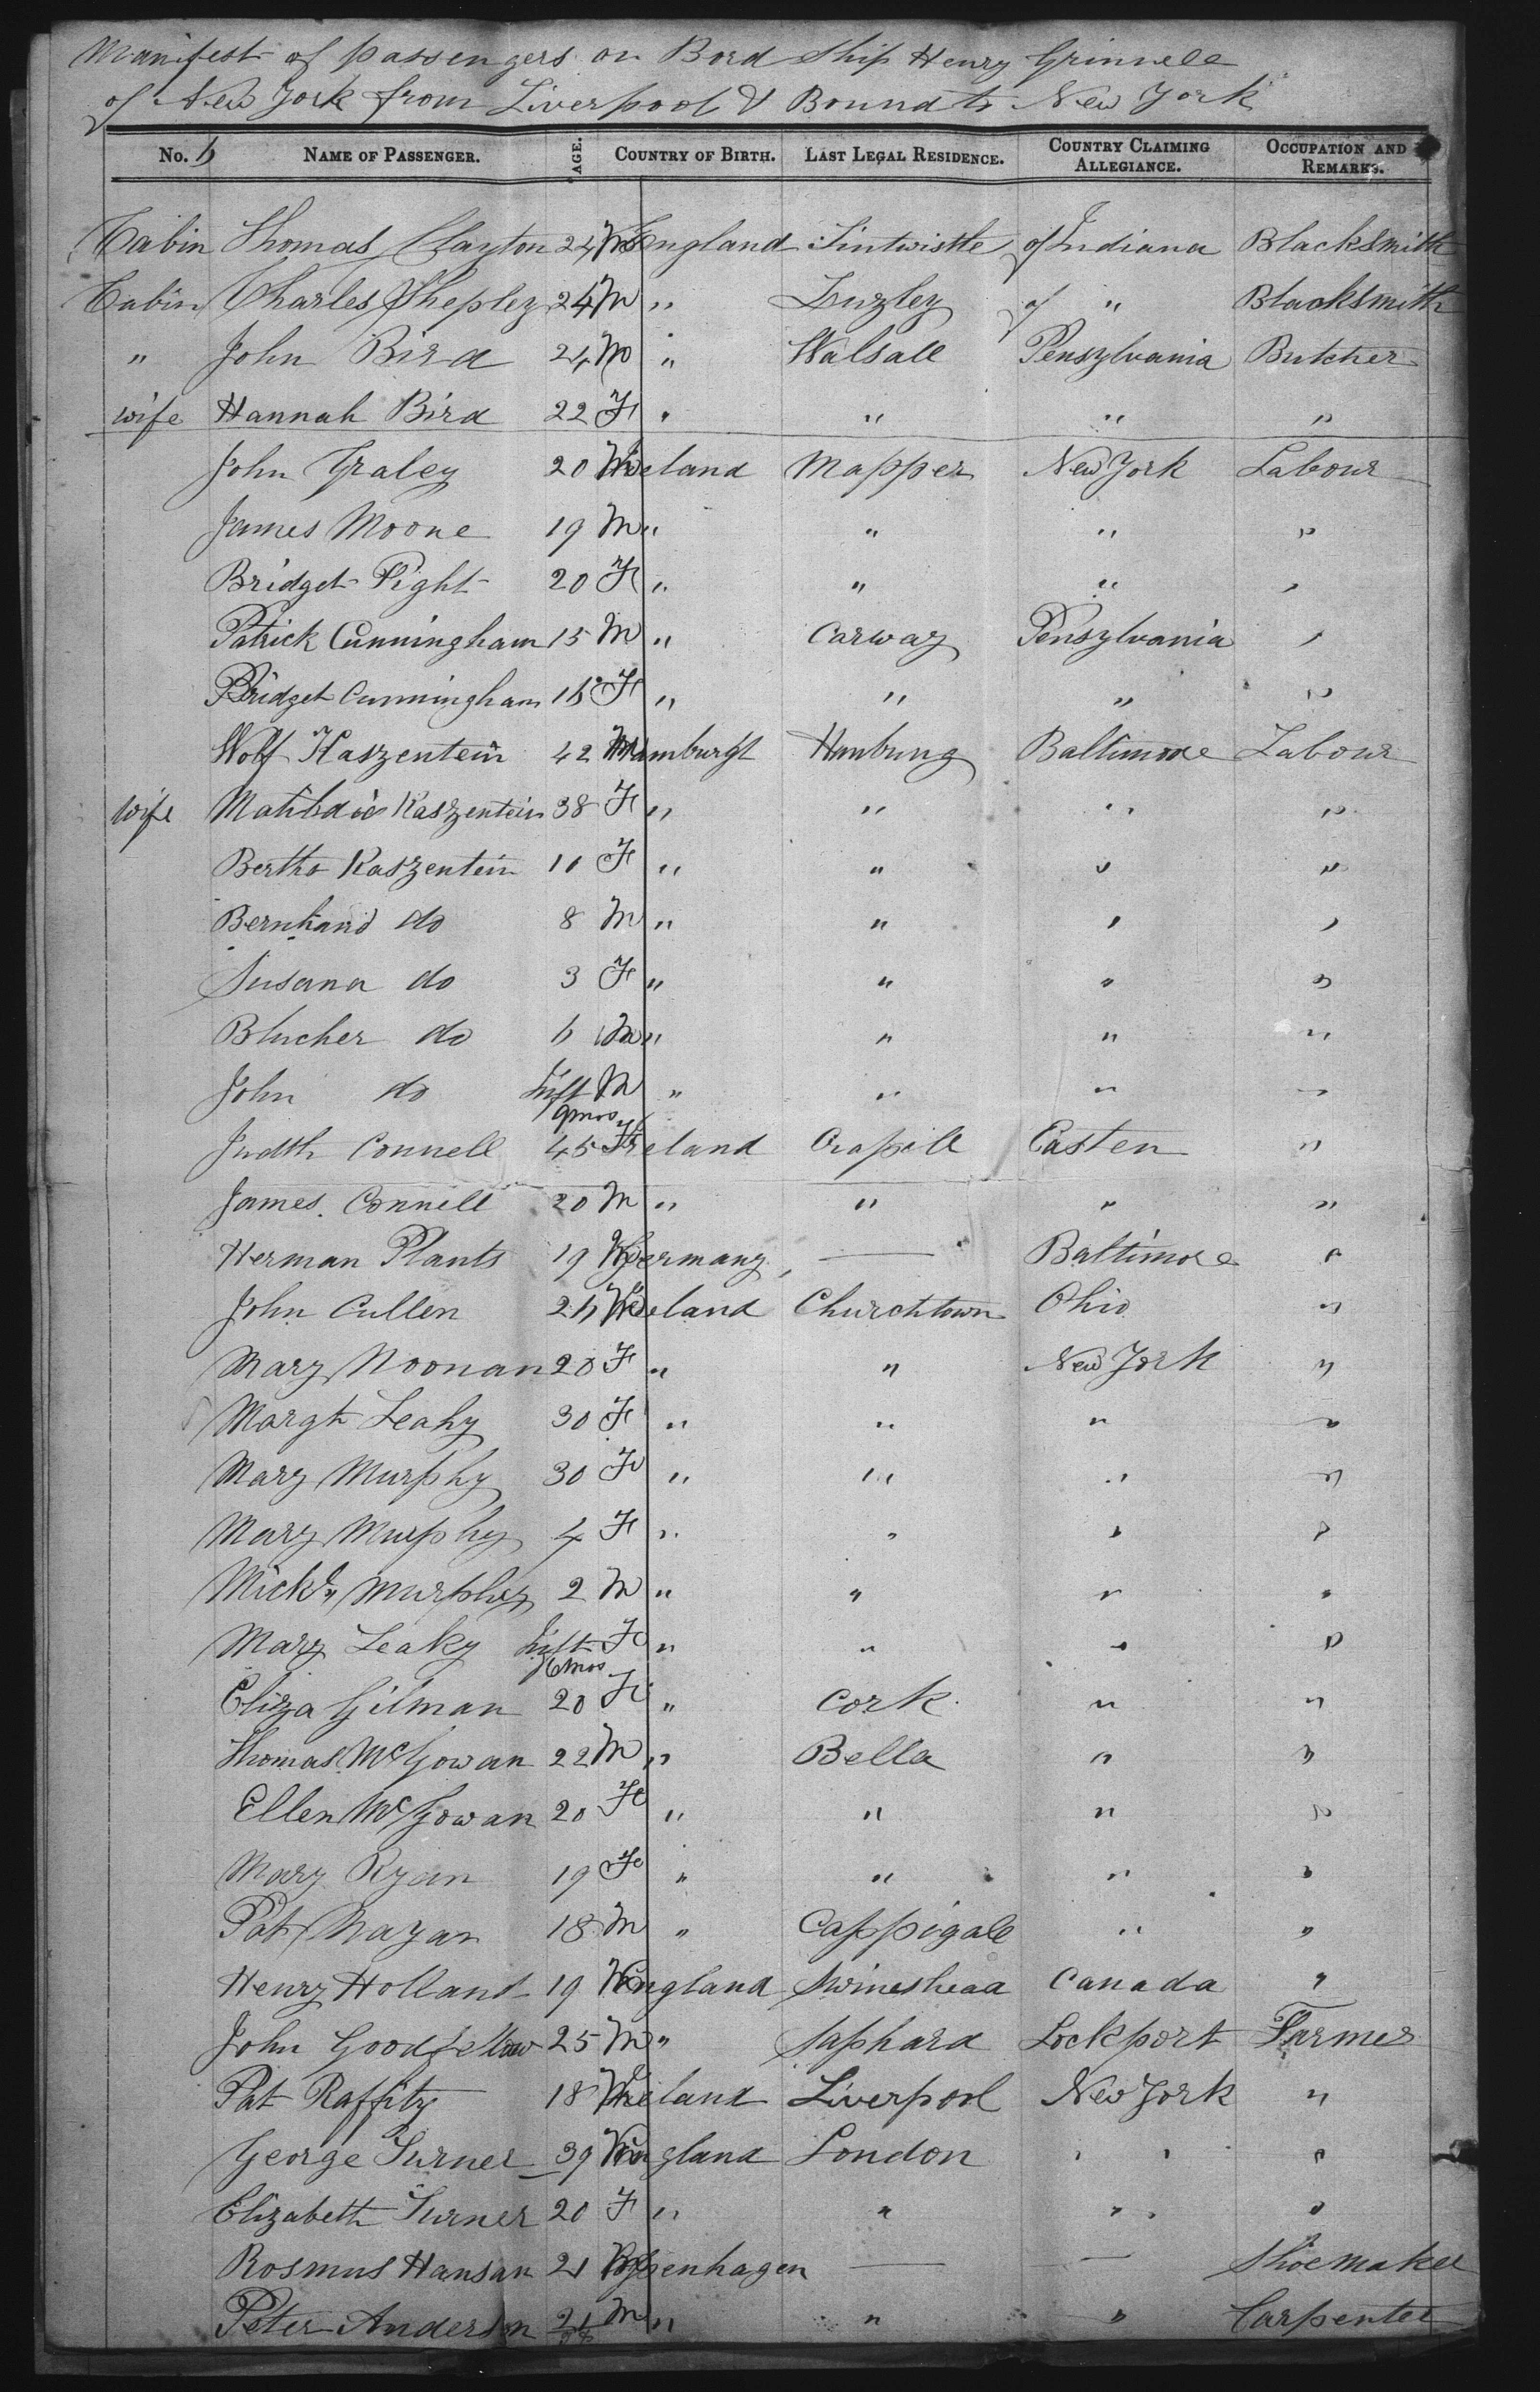 Manifest of passengers on Bord Ship Henry Grinnell
of New York from Liverpool & Bound to New York
No. NAME OF PASSENGER. AGE. COUNTRY OF BIRTH. LAST LEGAL RESIDENCE. COUNTRY CLAIMING ALLEGIANCE. OCCUPATION AND REMARKS.
Cabin Thomas Clayton 24 M England Tintwistle of Indiana Blacksmith
Cabin Charles Shepley 24 M " of " Blacksmith
" John Bird 24 M " Walsall Pensylvania Butcher
wife Hannah Bird 22 F " " " "
John Graley 20 M Ireland Mapper New York Labour
James Moone 19 M " " " "
Bridget Fight 20 F " " " "
Patrick Cunningham 15 M " Carway Pensylvania "
Bridget Cunningham 16 F " " " "
Wolf Kaszentein 42 M Hamburgt Hamburg Baltimore Labour
wife Matilda Kaszentein 38 F " " " "
Bertho Kaszentein 10 F " " " "
Bernhard do 8 M " " " "
Susana do 3 F " " " "
Blucher do 6 M " " " "
John do Inft 9 mos M " " " "
Judth Connell 45 F Ireland Easten "
James Connell 20 M " " " "
Herman Plants 19 M Germany — Baltimore "
John Cullen 26 M Ireland Churchtown Ohio "
Mary Noonan 20 F " " New York "
Margt Leahy 30 F " " " "
Mary Murphy 30 F " " " "
Mary Murphy 4 F " " " "
Mickl Murphy 2 M " " " "
Mary Leahy Inft 6 mos F " " " "
Eliza Gilman 20 F " Cork " "
Thomas McGowan 22 M " Bella " "
Ellen McGowan 20 F " " " "
Mary Ryan 19 F " " " "
Pat Nagan 18 M " Cappigale " "
Henry Holland 19 M England Swineshead Canada "
John Goodfellow 25 M " Saphard Lockport Farmer
Pat Raffity 18 M Ireland Liverpool New York "
George Turner 39 M England London " "
Elizabeth Turner 20 F " " " "
Rosmus Hansan 21 M Copenhagen — — Shoemaker
Peter Anderson 21 M " " " Carpenter